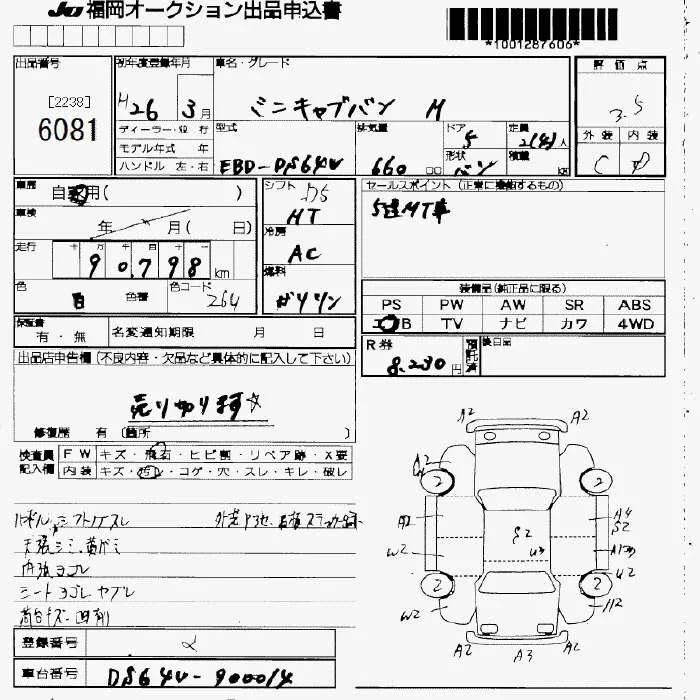 JU 福岡オークション出品申込書
*1001287606*
出品番号
[2238]
6081
初年度登録年月
H26 3月
車名・グレード
ミニキャブバン M
評価点
3.5
外装 内装
C D
ディーラー・並行
モデル年式 年
ハンドル 左・右
型式
EBD-DS64V
排気量
660 cc
ドア
5
形状
バン
定員
2(4)人
積載
車歴
自家用( )
車検
年 月( 日)
走行
十 万 千 百 十 一
90,798 km
色
白
色替
色コード
26U
シフト
D5
MT
冷房
AC
燃料
ガソリン
セールスポイント(正常に機能するもの)
5速MT車
装備品(純正品に限る)
PS PW AW SR ABS
エアB TV ナビ カワ 4WD
保証書
有・無
名変通知期限 月 日
R券
8,230円
預託済
後日品
出品店申告欄(不良内容・欠品など具体的に記入して下さい)
売り切ります☆
修復歴 有(箇所 )
検査員記入欄
FW キズ・飛石・ヒビ割・リペア跡・X要
内装 キズ・汚レ・コゲ・穴・スレ・キレ・破レ
ハンドル、シフトノブスレ
天張シミ、黄バミ
内張ヨゴレ
シートヨゴレヤブレ
荷台キズ
A2 A2
2 2
A2 A4
S2
S2
W2
U2
2 2
W2
A2 A3 A2
登録番号
車台番号 DS64V-900014